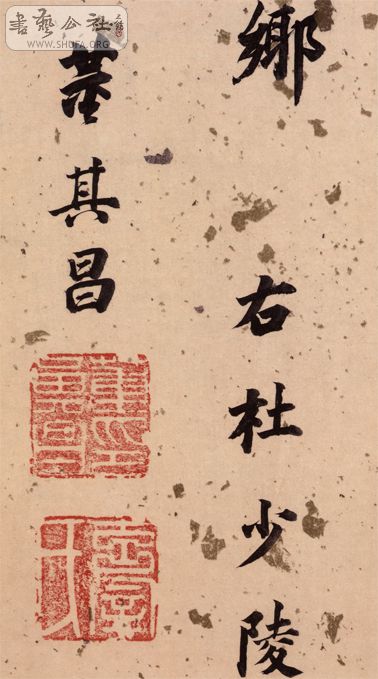 鄉 右杜少陵
董其昌
書藝公社
WWW.SHUFA.ORG